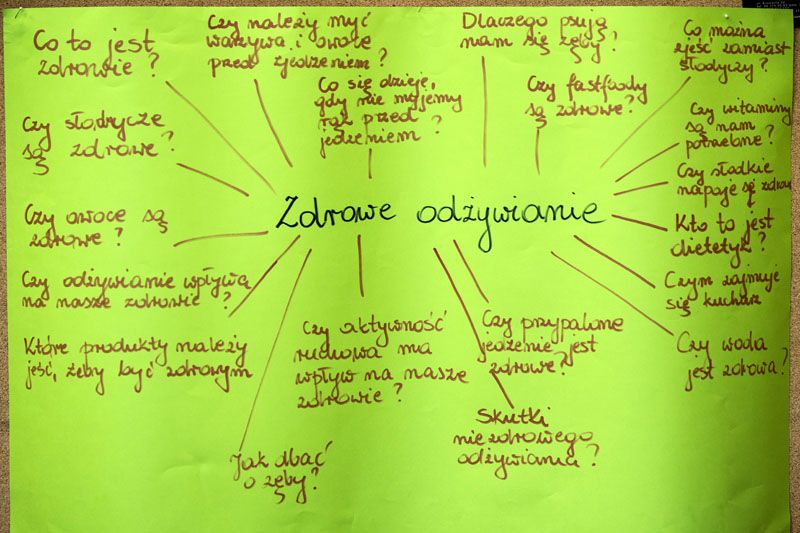 Co to jest
zdrowie?
Czy należy myć
warzywa i owoce
przed zjedzeniem?
Dlaczego psują
nam się zęby?
Co można
zjeść zamiast
słodyczy?
Co się dzieje,
gdy nie myjemy
rąk przed
jedzeniem?
Czy fastfoody
są zdrowe?
Czy słodycze
są zdrowe?
Czy witaminy
są nam
potrzebne?
Czy słodkie
napoje są zdrowe
Zdrowe odżywianie
Czy owoce są
zdrowe?
Kto to jest
dietetyk?
Czy odżywianie wpływa
na nasze zdrowie?
Czym zajmuje
się kucharz
Które produkty należy
jeść, żeby być zdrowym
Czy aktywność
ruchowa ma
wpływ na nasze
zdrowie?
Czy przypalone
jedzenie jest
zdrowe?
Czy woda
jest zdrowa?
Jak dbać
o zęby?
Skutki
niezdrowego
odżywiania?